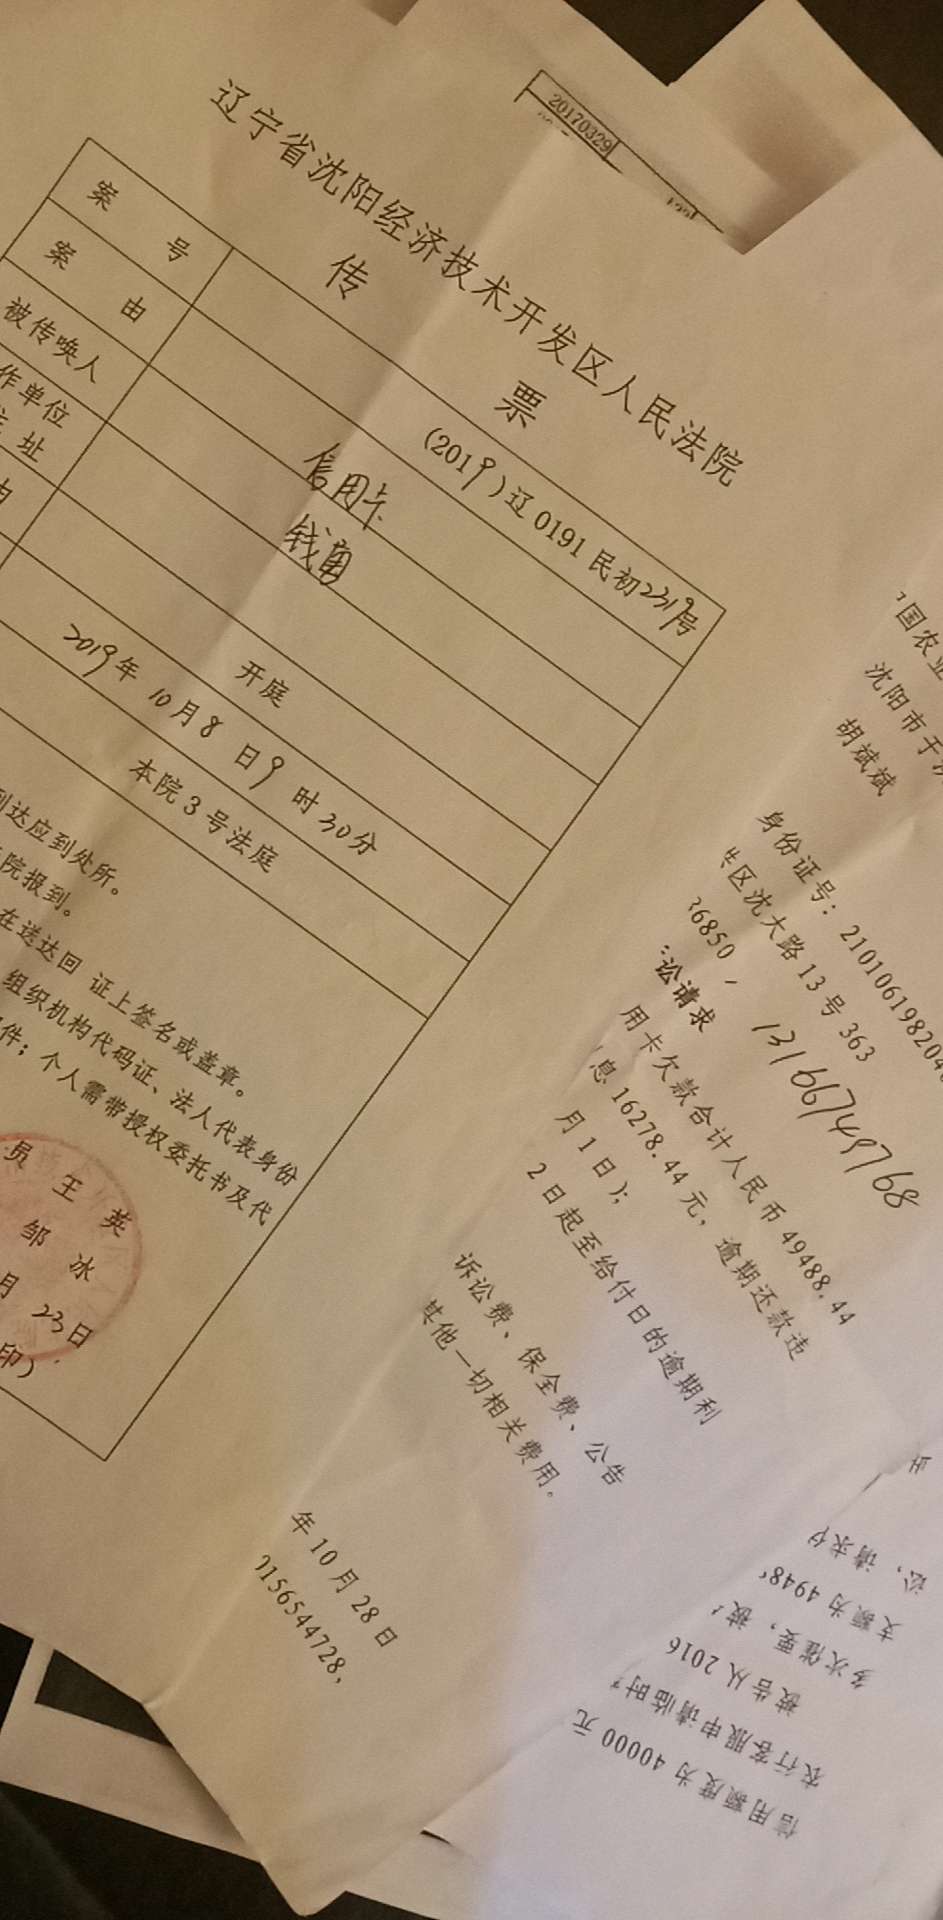 20170329
辽宁省沈阳经济技术开发区人民法院
传 票
案 号 (2019)辽0191民初2319号
案 由 信用卡
被传唤人 钱勇
作单位
址
开庭
2019年10月8日9时30分
本院3号法庭
到达应到处所。
院报到。
在送达回 证上签名或盖章。
组织机构代码证、法人代表身份
件；个人需带授权委托书及代
员 王 英
邹 冰
月 23日
印)
国农业
沈阳市于
胡斌斌
身份证号：210106198204
区沈大路13号363
36850
13166749768
讼请求
用卡欠款合计人民币49488.44
息16278.44元，逾期还款违
月1日);
2日起至给付日的逾期利
诉讼费、保全费、公告
其他一切相关费用。
年10月28日
0156544728,
信用额度为40000元
农行客服申请临时
被告从2016
多次催要，被
支额为4948
讼，请求